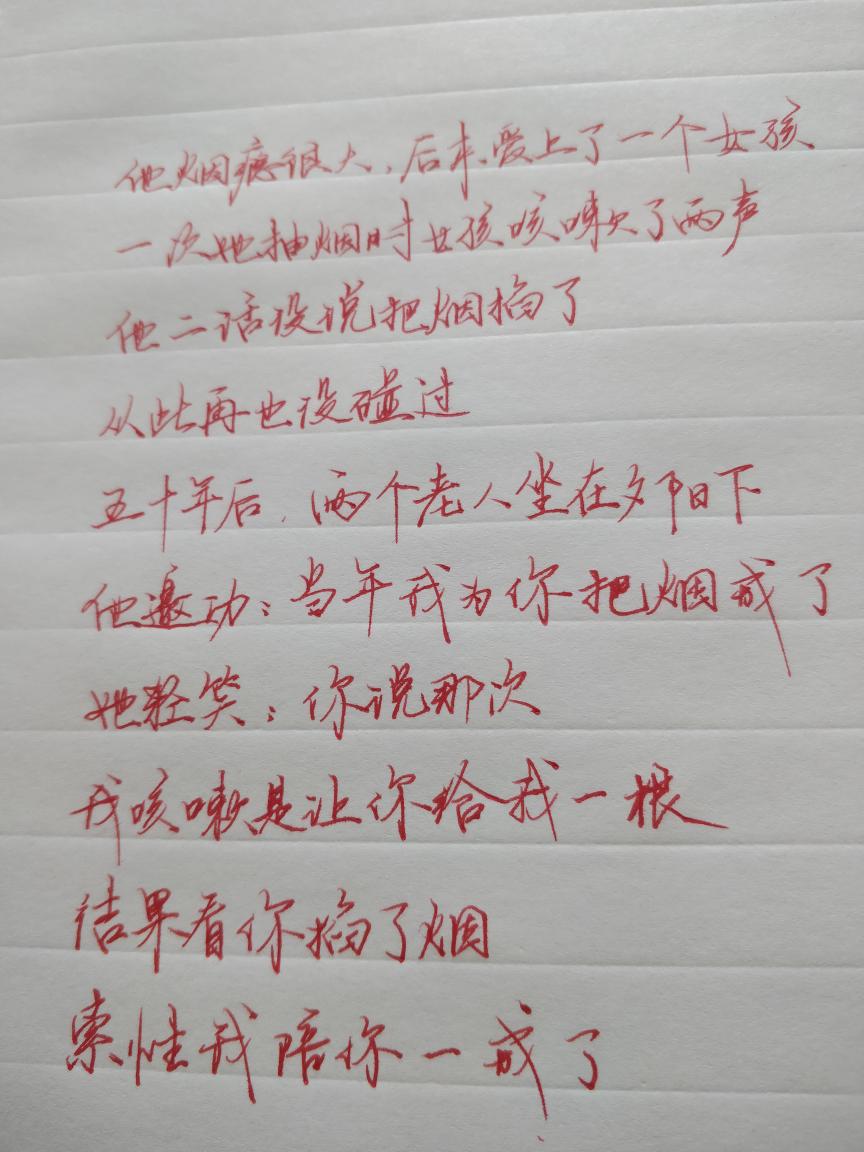 他烟瘾很大，后来爱上了一个女孩
一次她抽烟时女孩咳嗽了两声
他二话没说把烟掐了
从此再也没碰过
五十年后，两个老人坐在夕阳下
他邀功：当年我为你把烟戒了
她轻笑：你说那次
我咳嗽是让你给我一根
结果看你掐了烟
索性我陪你一戒了